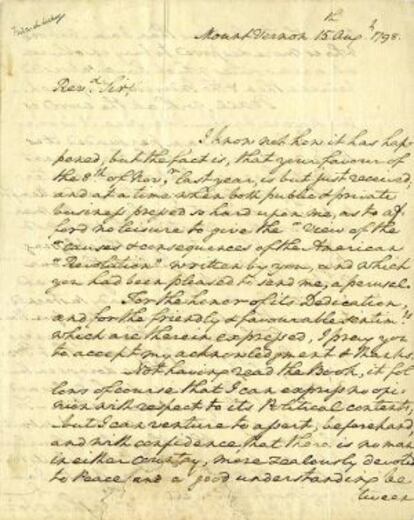 Mount Vernon 15th Augt 1798.
Revd. Sir,
I know not how it has hap
pened, but the fact is, that your favour of
the 8th of Novr. last year, is but just received
and at a time when both public & private
business pressed so hard upon me, as to af
ford no leisure to give the "View of the
"causes & consequences of the American
"Revolution" written by you, and which
you had been pleased to send me, a perusal.
For the honor of its Dedication,
and for the friendly & favourable sentimts.
which are therein expressed, I pray you
to accept my acknowledgment & thanks.
Not having read the Book, it fol
lows of course that I can express no opi
nion with respect to its Political contents;
but I can venture to assert, beforehand,
and with confidence that there is no man
in either country, more zealously devoted
to Peace and a good understanding be
tween